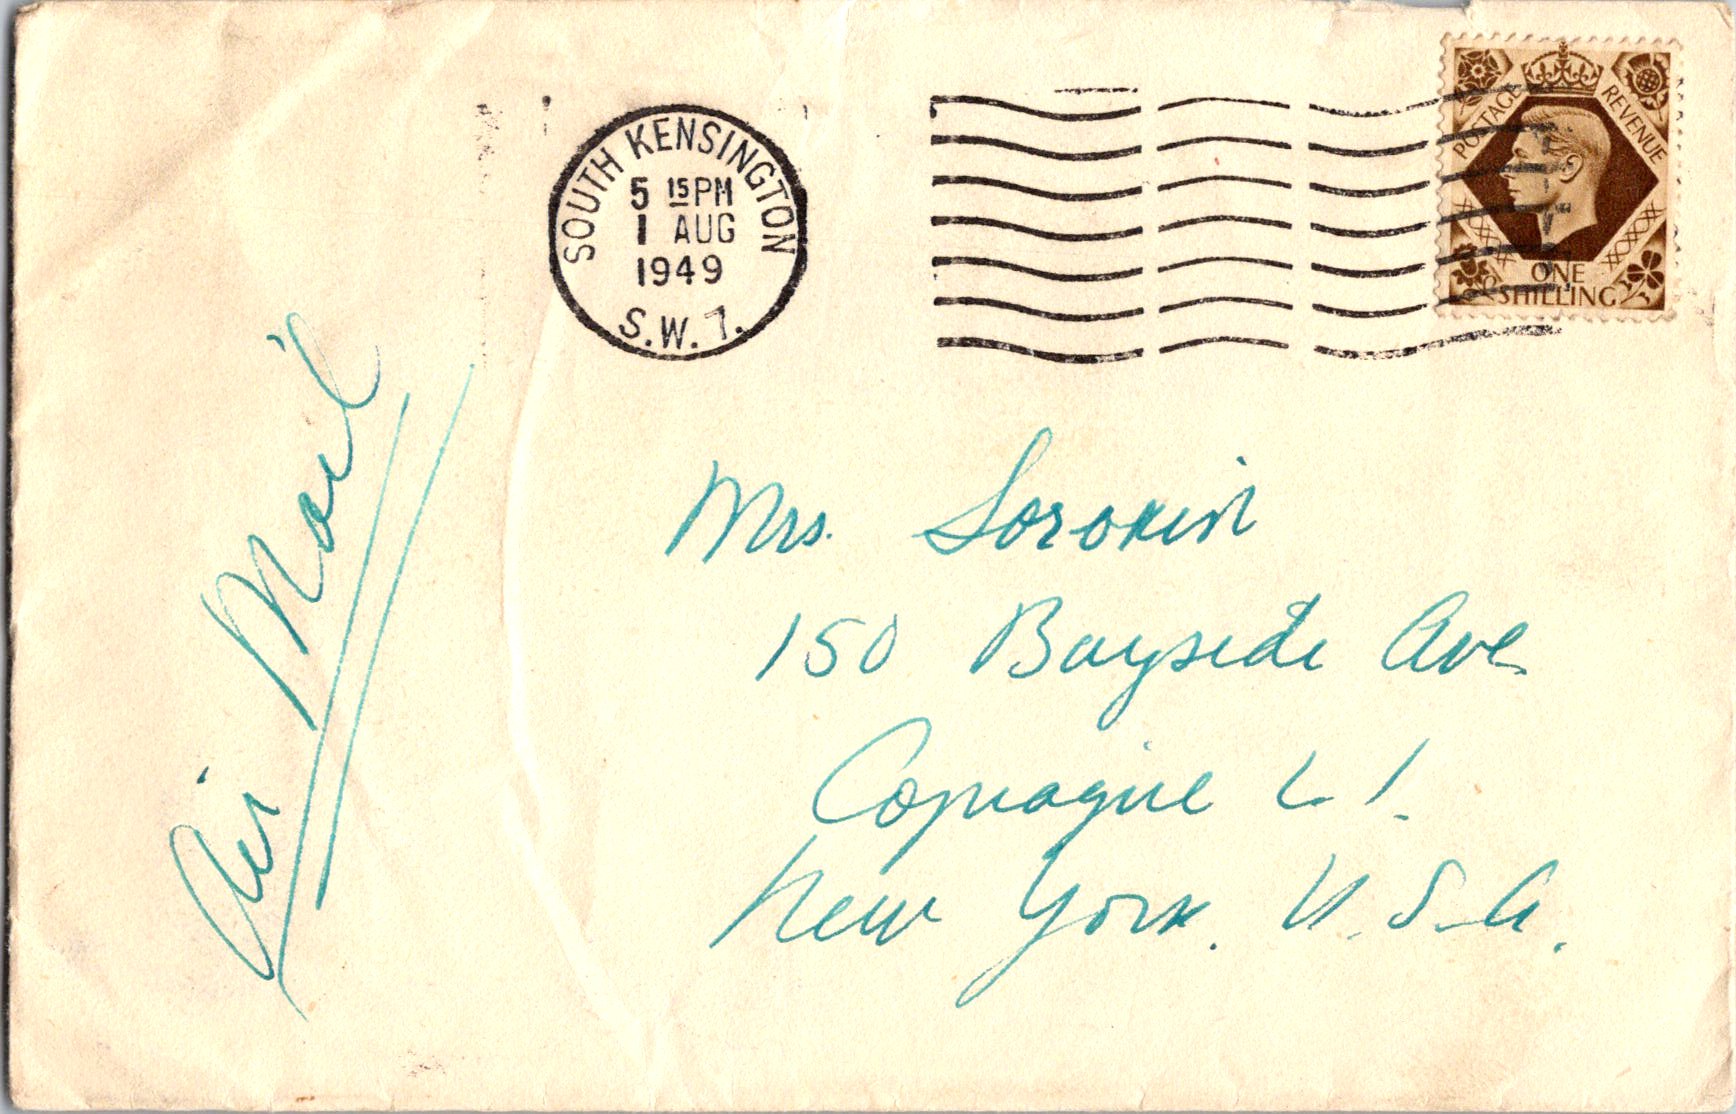 SOUTH KENSINGTON
5 15 PM
1 AUG
1949
S.W. 7.
POSTAGE REVENUE
ONE
SHILLING
Air Mail
Mrs. Sorokin
150 Bayside Ave
Copiague L I.
New York. U.S.A.